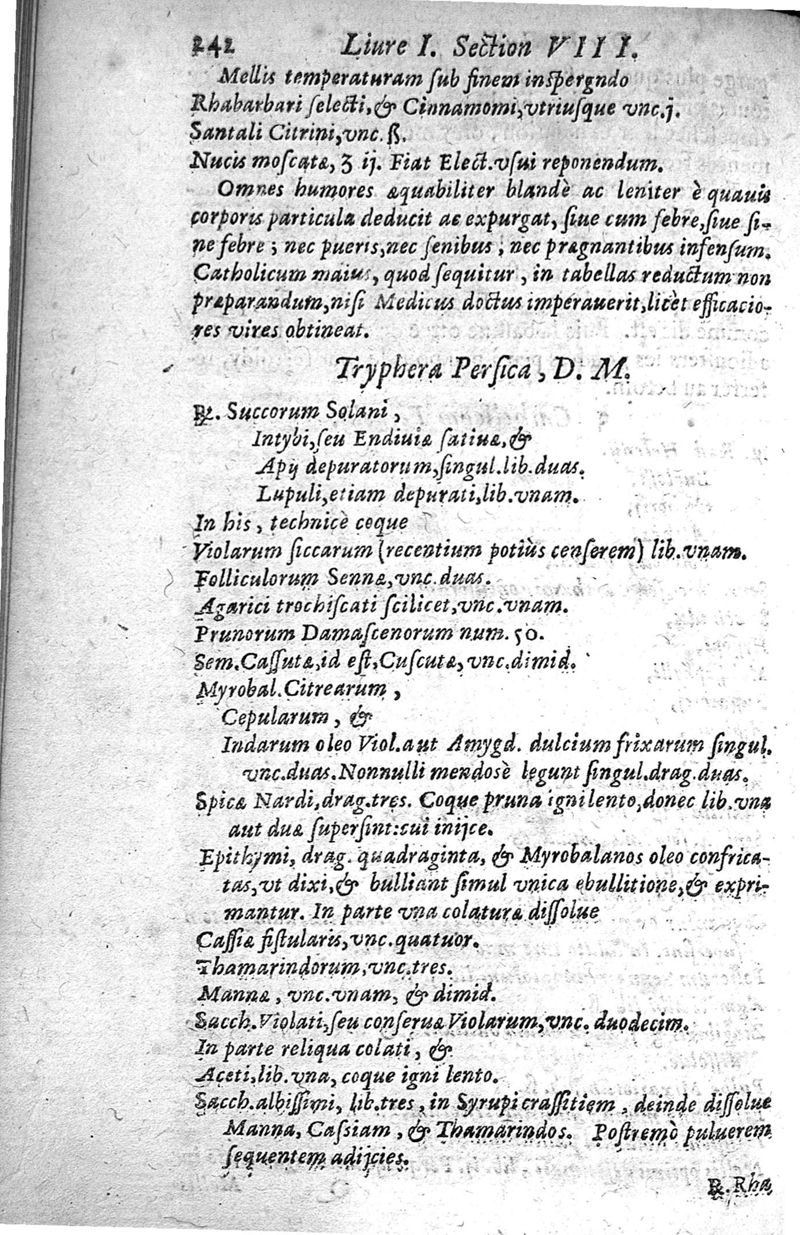 242 Liure I. Section VIII.
Mellis temperaturam ſub finem inſpergndo
Rhabarbari ſelecti, & Cinnamomi, vtriuſque vnc.j.
Santali Citrini, vnc. ß.
Nucis moſcatæ, ʒ ij. Fiat Elect. vſui reponendum.
Omnes humores æquabiliter blandè ac leniter è quauis
corporis particula deducit ac expurgat, ſiue cum febre, ſiue ſi-
ne febre ; nec pueris, nec ſenibus, nec prægnantibus infenſum.
Catholicum maius, quod ſequitur, in tabellas reductum non
præparandum, niſi Medicus doctus imperauerit, licèt efficacio-
res vires obtineat.
Tryphera Perſica, D. M.
℞. Succorum Solani,
Intybi, ſeu Endiuiæ ſatiuæ, &
Apij depuratorum, ſingul. lib. duas.
Lupuli, etiam depurati, lib. vnam.
In his, technicè coque
Violarum ſiccarum (recentium potiùs cenſerem) lib. vnam.
Folliculorum Sennæ, vnc. duas.
Agarici trochiſcati ſcilicet, vnc. vnam.
Prunorum Damaſcenorum num. 50.
Sem. Caſſutæ, id eſt, Cuſcutæ, vnc. dimid.
Myrobal. Citrearum,
Cepularum, &
Indarum oleo Viol. aut Amygd. dulcium frixarum ſingul.
vnc. duas. Nonnulli mendosè legunt ſingul. drag. duas.
Spicæ Nardi, drag. tres. Coque pruna igni lento, donec lib. vna
aut duæ ſuperſint: cui inijce.
Epithymi, drag. quadraginta, & Myrobalanos oleo confrica-
tas, vt dixi, & bulliant ſimul vnica ebullitione, & expri-
mantur. In parte vna colaturæ diſſolue
Caſſiæ fiſtularis, vnc. quatuor.
Thamarindorum, vnc. tres.
Mannæ, vnc. vnam, & dimid.
Sacch. Violati, ſeu conſeruæ Violarum, vnc. duodecim.
In parte reliqua colati, &
Aceti, lib. vna, coque igni lento.
Sacch. albiſſimi, lib. tres, in Syrupi craſſitiem, deinde diſſolue
Manna, Caſsiam, & Thamarindos. Poſtremò puluerem
ſequentem adijcies.
℞. Rha